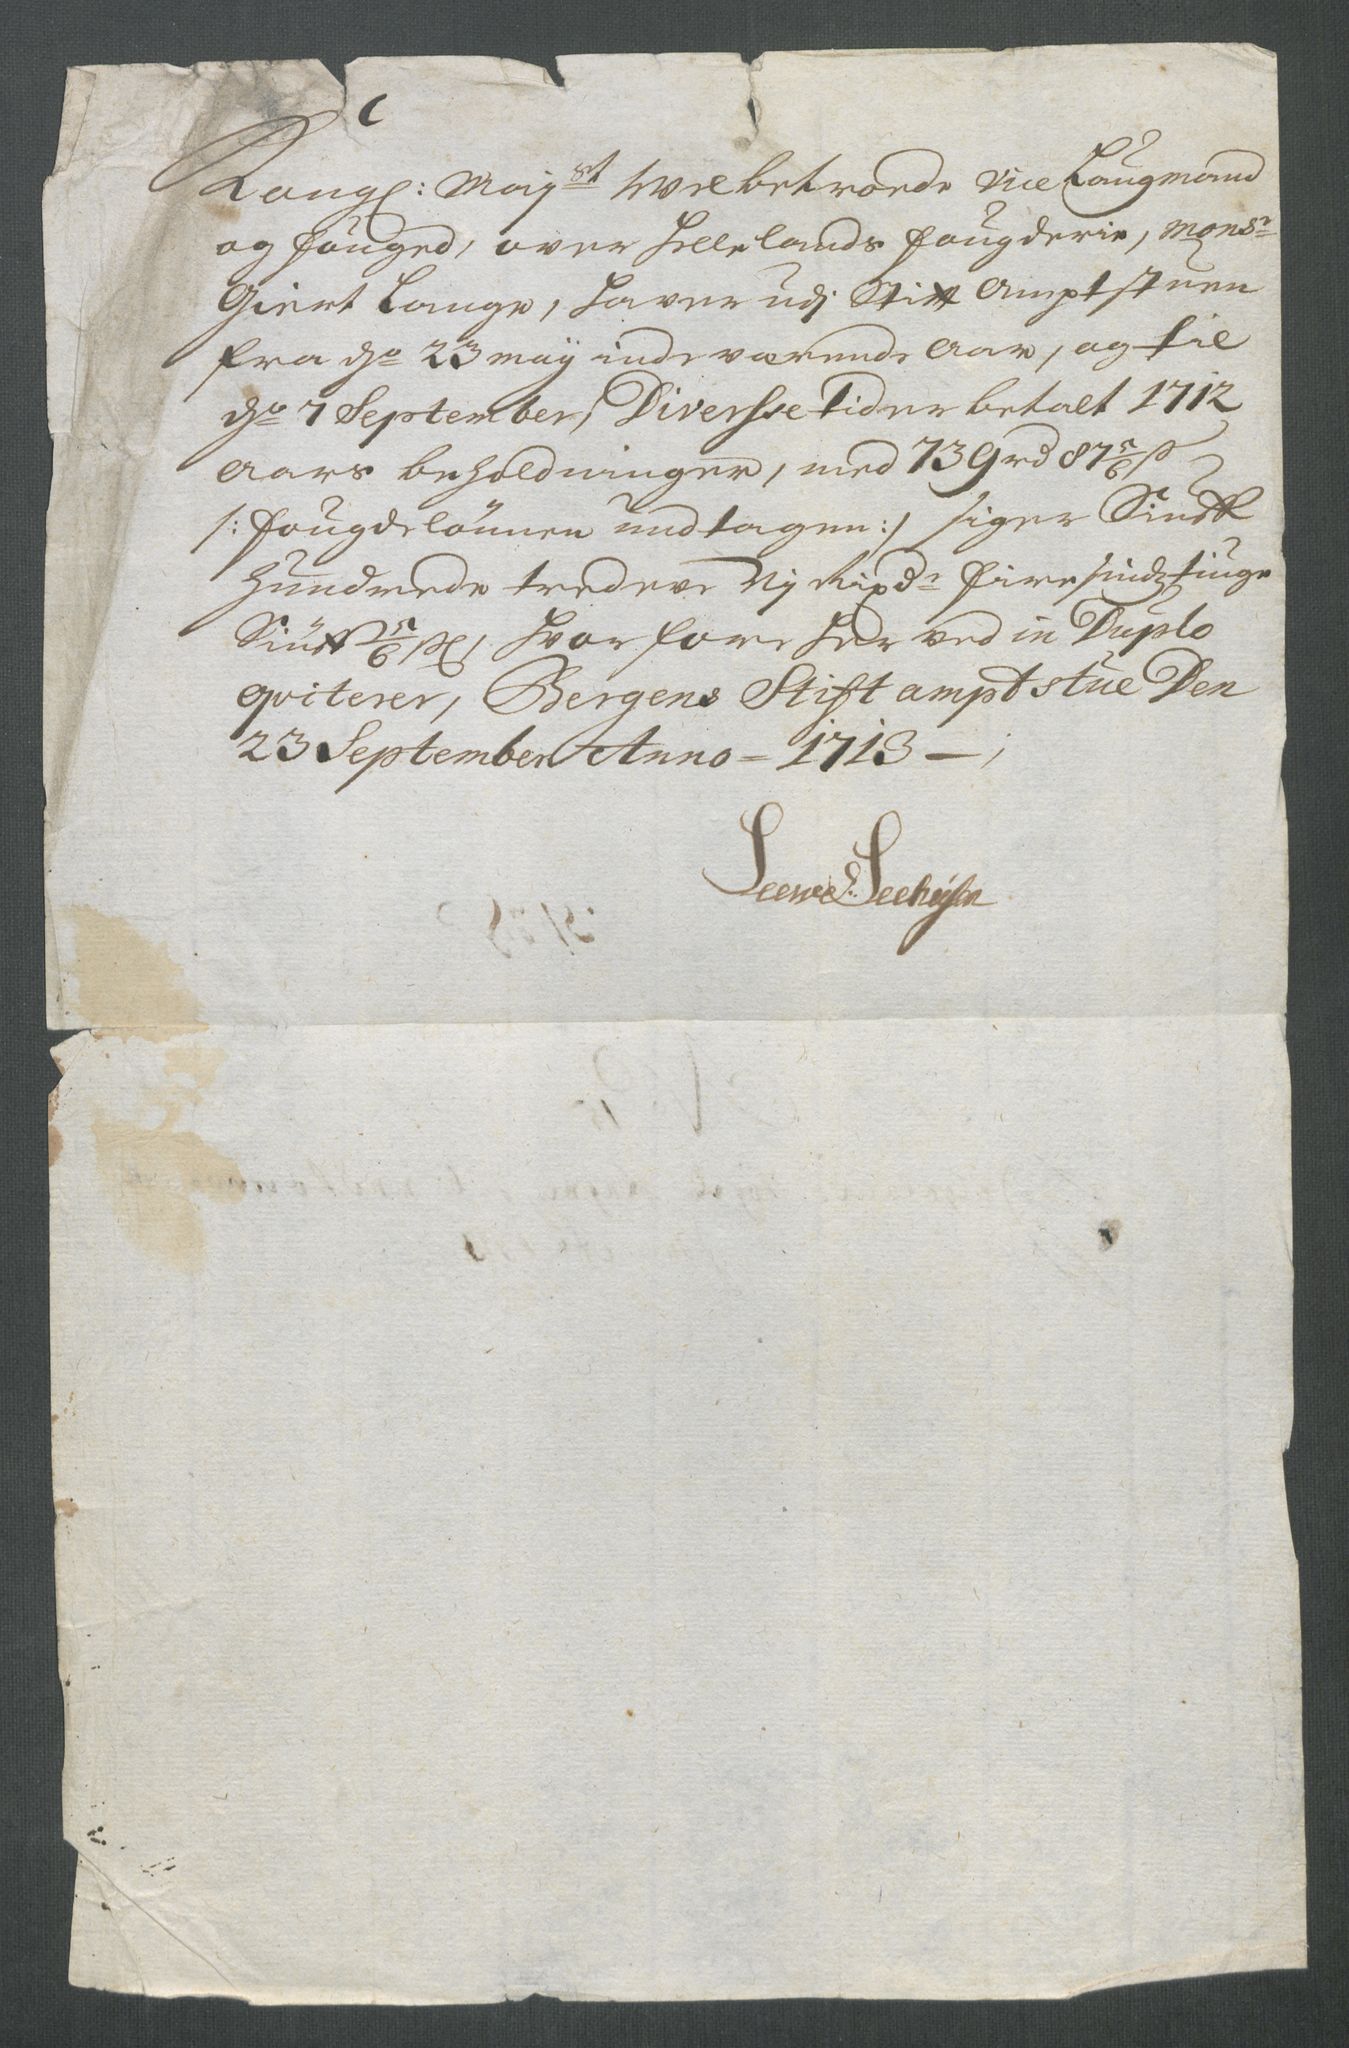 C
Kongl: Maÿst. Welbetroede Vice Laugmand
og fouged, over Jelelands fougderie, Monsr:
Giert Lange, haver udj Stift Amptstuen
fra do 23 maÿ indeværende Aar, og til
do 7 September, Diversse tider betalt 1712
aars beholdninger, med 739 rd 87 5/6 s
/: fougdelönnen undtagen :/ siger Siuff
Hundrede tredeve Nj Rixdr. firesindztiuge
Siuff 5/6 s, hvor fore her ved in Duplo
qviterer, Bergens Stiftamptstue Den
23 September Anno - 1713 -
Seewe Seehusen